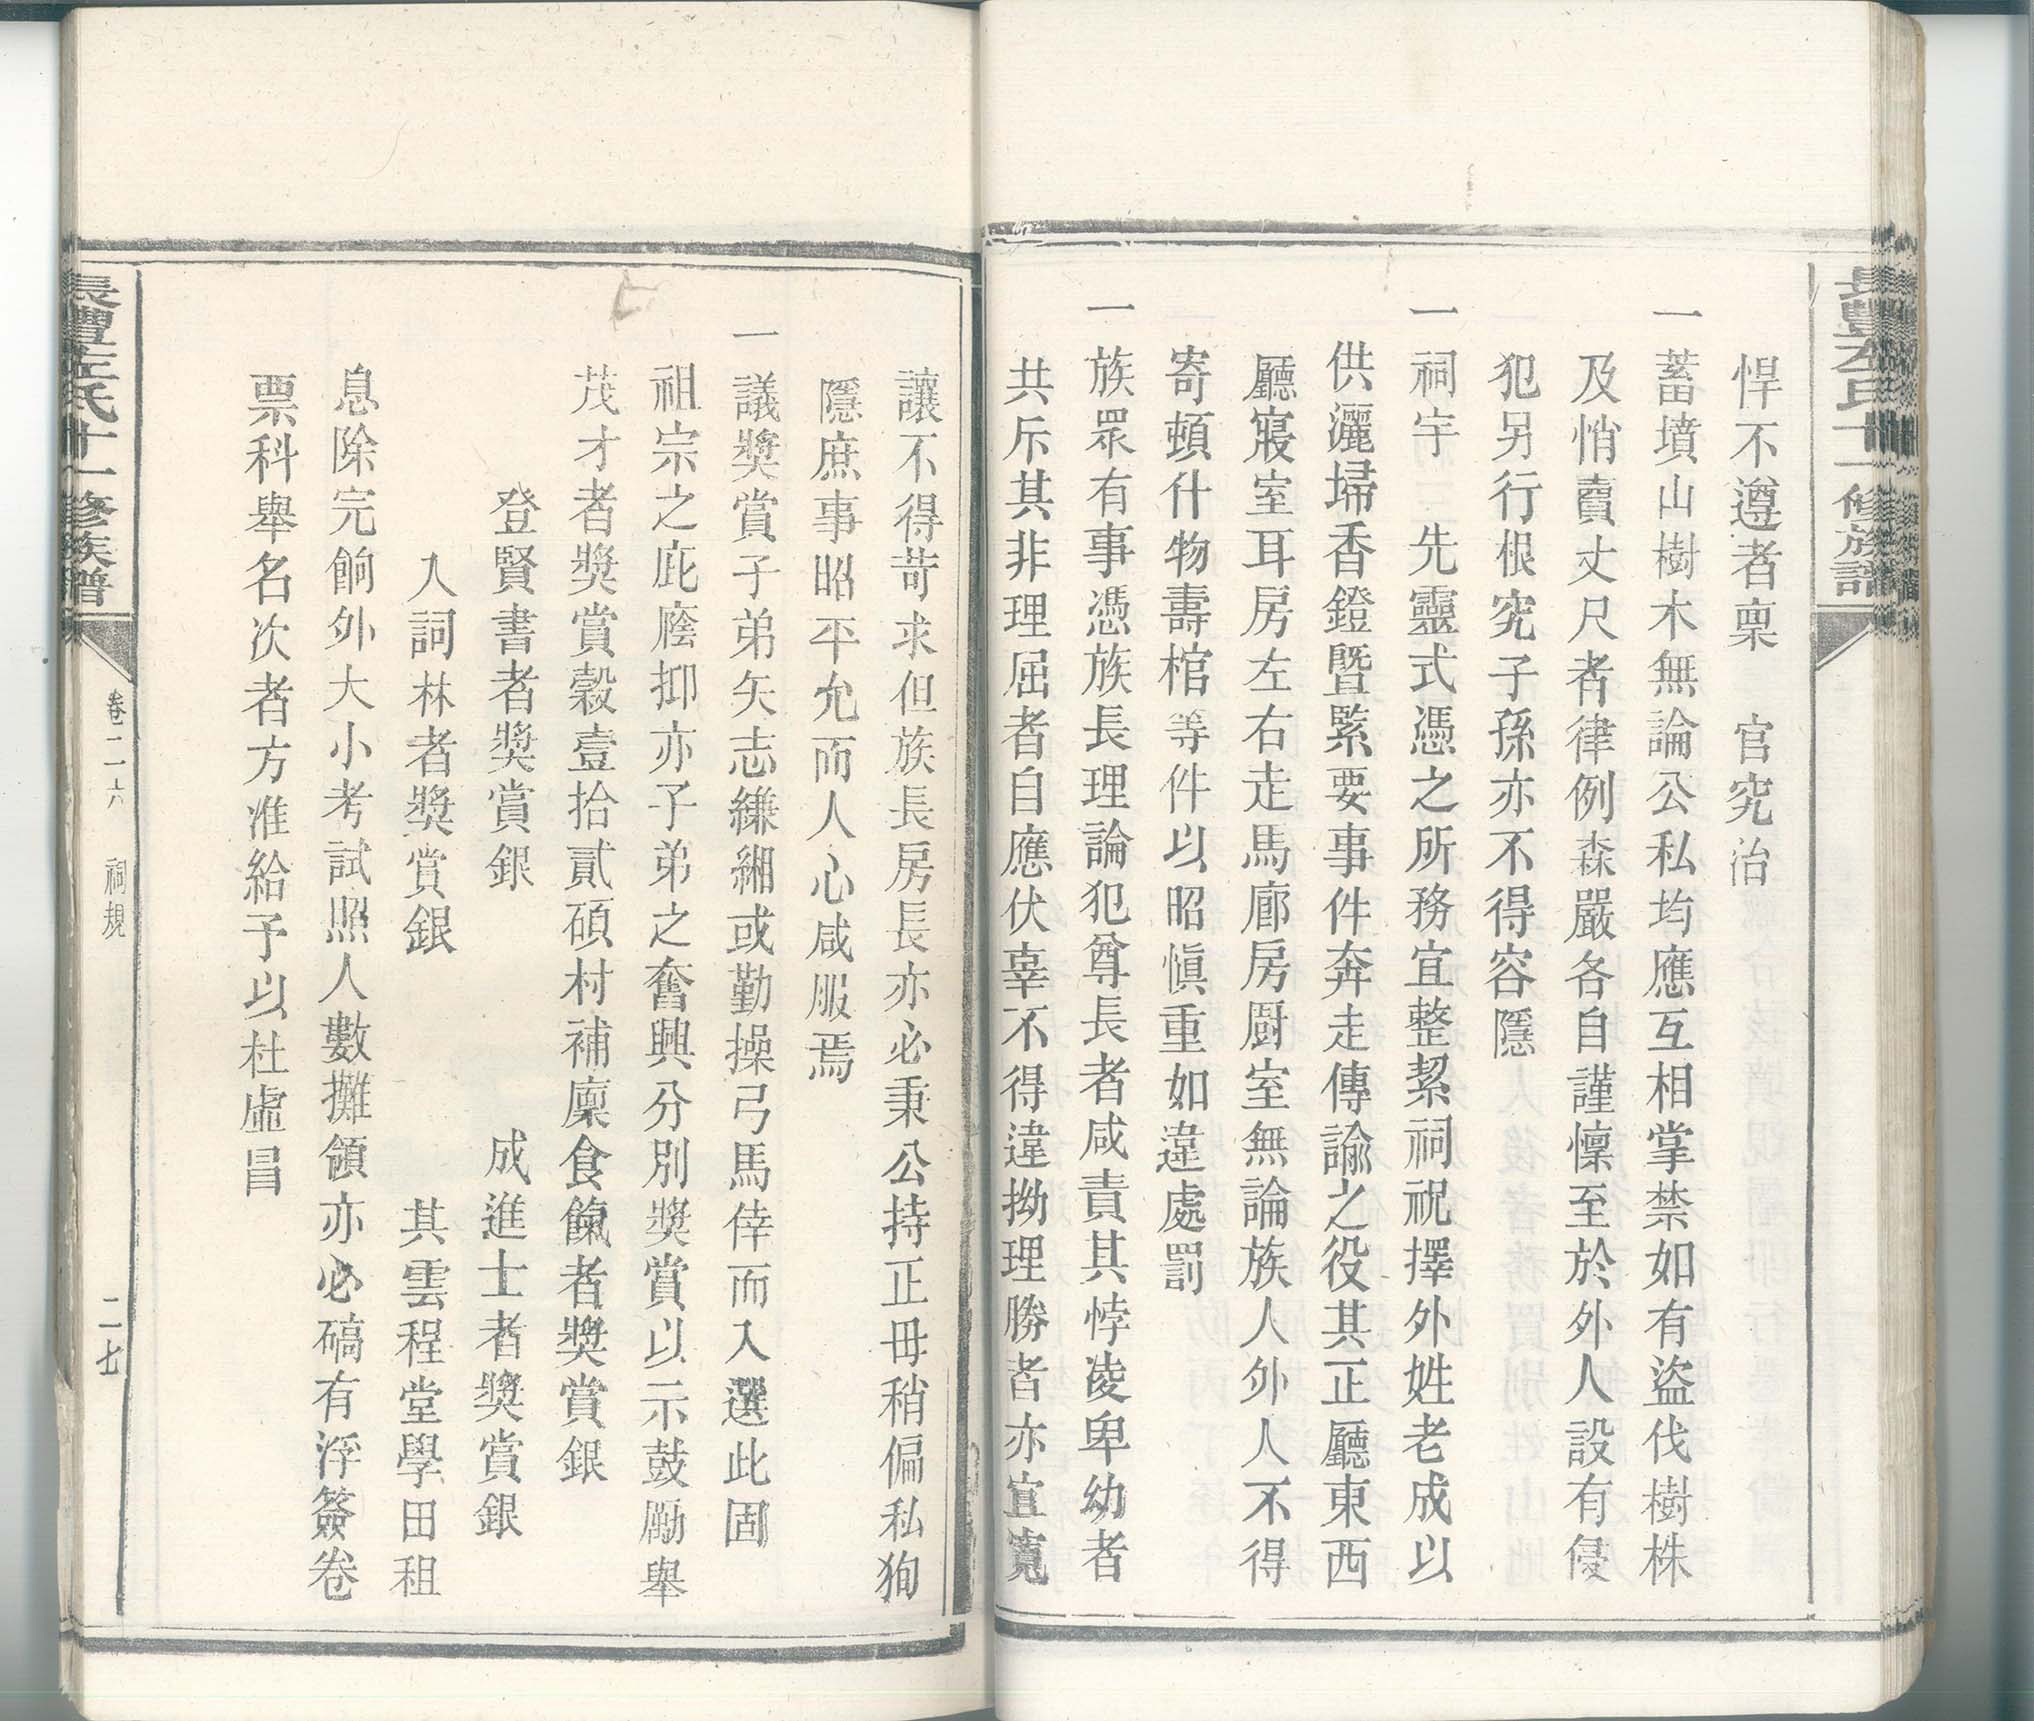 長豐左氏十一修族譜
悍不遵者稟　官究治
一蓄墳山樹木無論公私均應互相掌禁如有盜伐樹株
及悄賣丈尺者律例森嚴各自謹懍至於外人設有侵
犯另行根究子孫亦不得容隱
一祠宇　先靈式憑之所務宜整潔祠祝擇外姓老成以
供灑埽香鐙曁緊要事件奔走傳諭之役其正廳東西
廳寢室耳房左右走馬廊房厨室無論族人外人不得
寄頓什物壽棺等件以昭愼重如違處罰
一族眾有事憑族長理論犯尊長者咸責其悖凌卑幼者
共斥其非理屈者自應伏辜不得違拗理勝者亦宜寬
讓不得苛求但族長房長亦必秉公持正毋稍偏私狥
隱庶事昭平允而人心咸服焉
一議獎賞子弟矢志縑緗或勤操弓馬倖而入選此固
祖宗之庇廕抑亦子弟之奮興分別獎賞以示鼓勵舉
茂才者獎賞穀壹拾貳碩村補廩食餼者獎賞銀
登賢書者獎賞銀　　　　成進士者獎賞銀
入詞林者獎賞銀　　　　其雲程堂學田租
息除完餉外大小考試照人數攤領亦必碻有浮簽卷
票科舉名次者方准給予以杜虛冒
長豐左氏十一修族譜
卷二六　祠規
二七